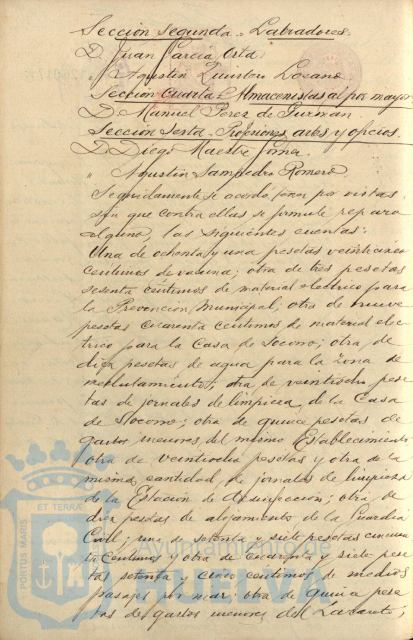 Sección Segunda.- Labradores.
D. Juan García Orta
" Agustín Quintero Lozano
Sección Cuarta.- Almacenistas al por mayor
D. Manuel Pérez de Guzmán
Sección Sexta.- Profesiones, artes y oficios.
D. Diego Maestre Gómez
" Agustín Sampedro Romero.
Seguidamente se acordó tener por vistas
sin que contra ellas se formule reparo
alguno, las siguientes cuentas:
Una de ochenta y una pesetas veinticinco
céntimos de vacuna; otra de tres pesetas
sesenta céntimos de material eléctrico para
la Prevención Municipal; otra de nueve
pesetas cuarenta céntimos de material eléc
trico para la Casa de Socorro; otra de
diez pesetas de agua para la Zona de
reclutamiento; otra de veintiocho pese
tas de jornales de limpieza de la Casa
de Socorro; otra de quince pesetas de
gastos menores del mismo Establecimiento
otra de veintiocho pesetas y otra de la
misma cantidad de jornales de limpieza
de la Estación de desinfección; otra de
diez pesetas de alojamiento de la Guardia
Civil; una de setenta y siete pesetas cincuen
ta céntimos y otra de cuarenta y siete pese
tas setenta y cinco céntimos de medios
pasajes por mar; otra de quince pese
tas de gastos menores del Lazareto;
PORTUS MARIS ET TERRAE
Ayuntamiento de
HUELVA